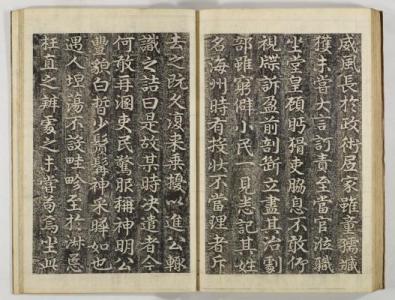 威風長於政術居家雖童孺臧
獲未嘗大言訂責至當官涖職
坐堂皇顧眄猾吏脇息不敢仰
視牒訴盈前剖斷立盡其治劇
部雖窮僻小民一見志記其姓
名海州時有投狀不當理者斥
去之既久復來乗擾以進公輙
識之詰曰是故某時決遣者今
何敢再溷吏民驚服稱神明公
豐貌白晳少鬚髯神采睟如也
遇人坦蕩不設畦畛至於淑慝
枉直之辨處之未嘗苟焉坐此